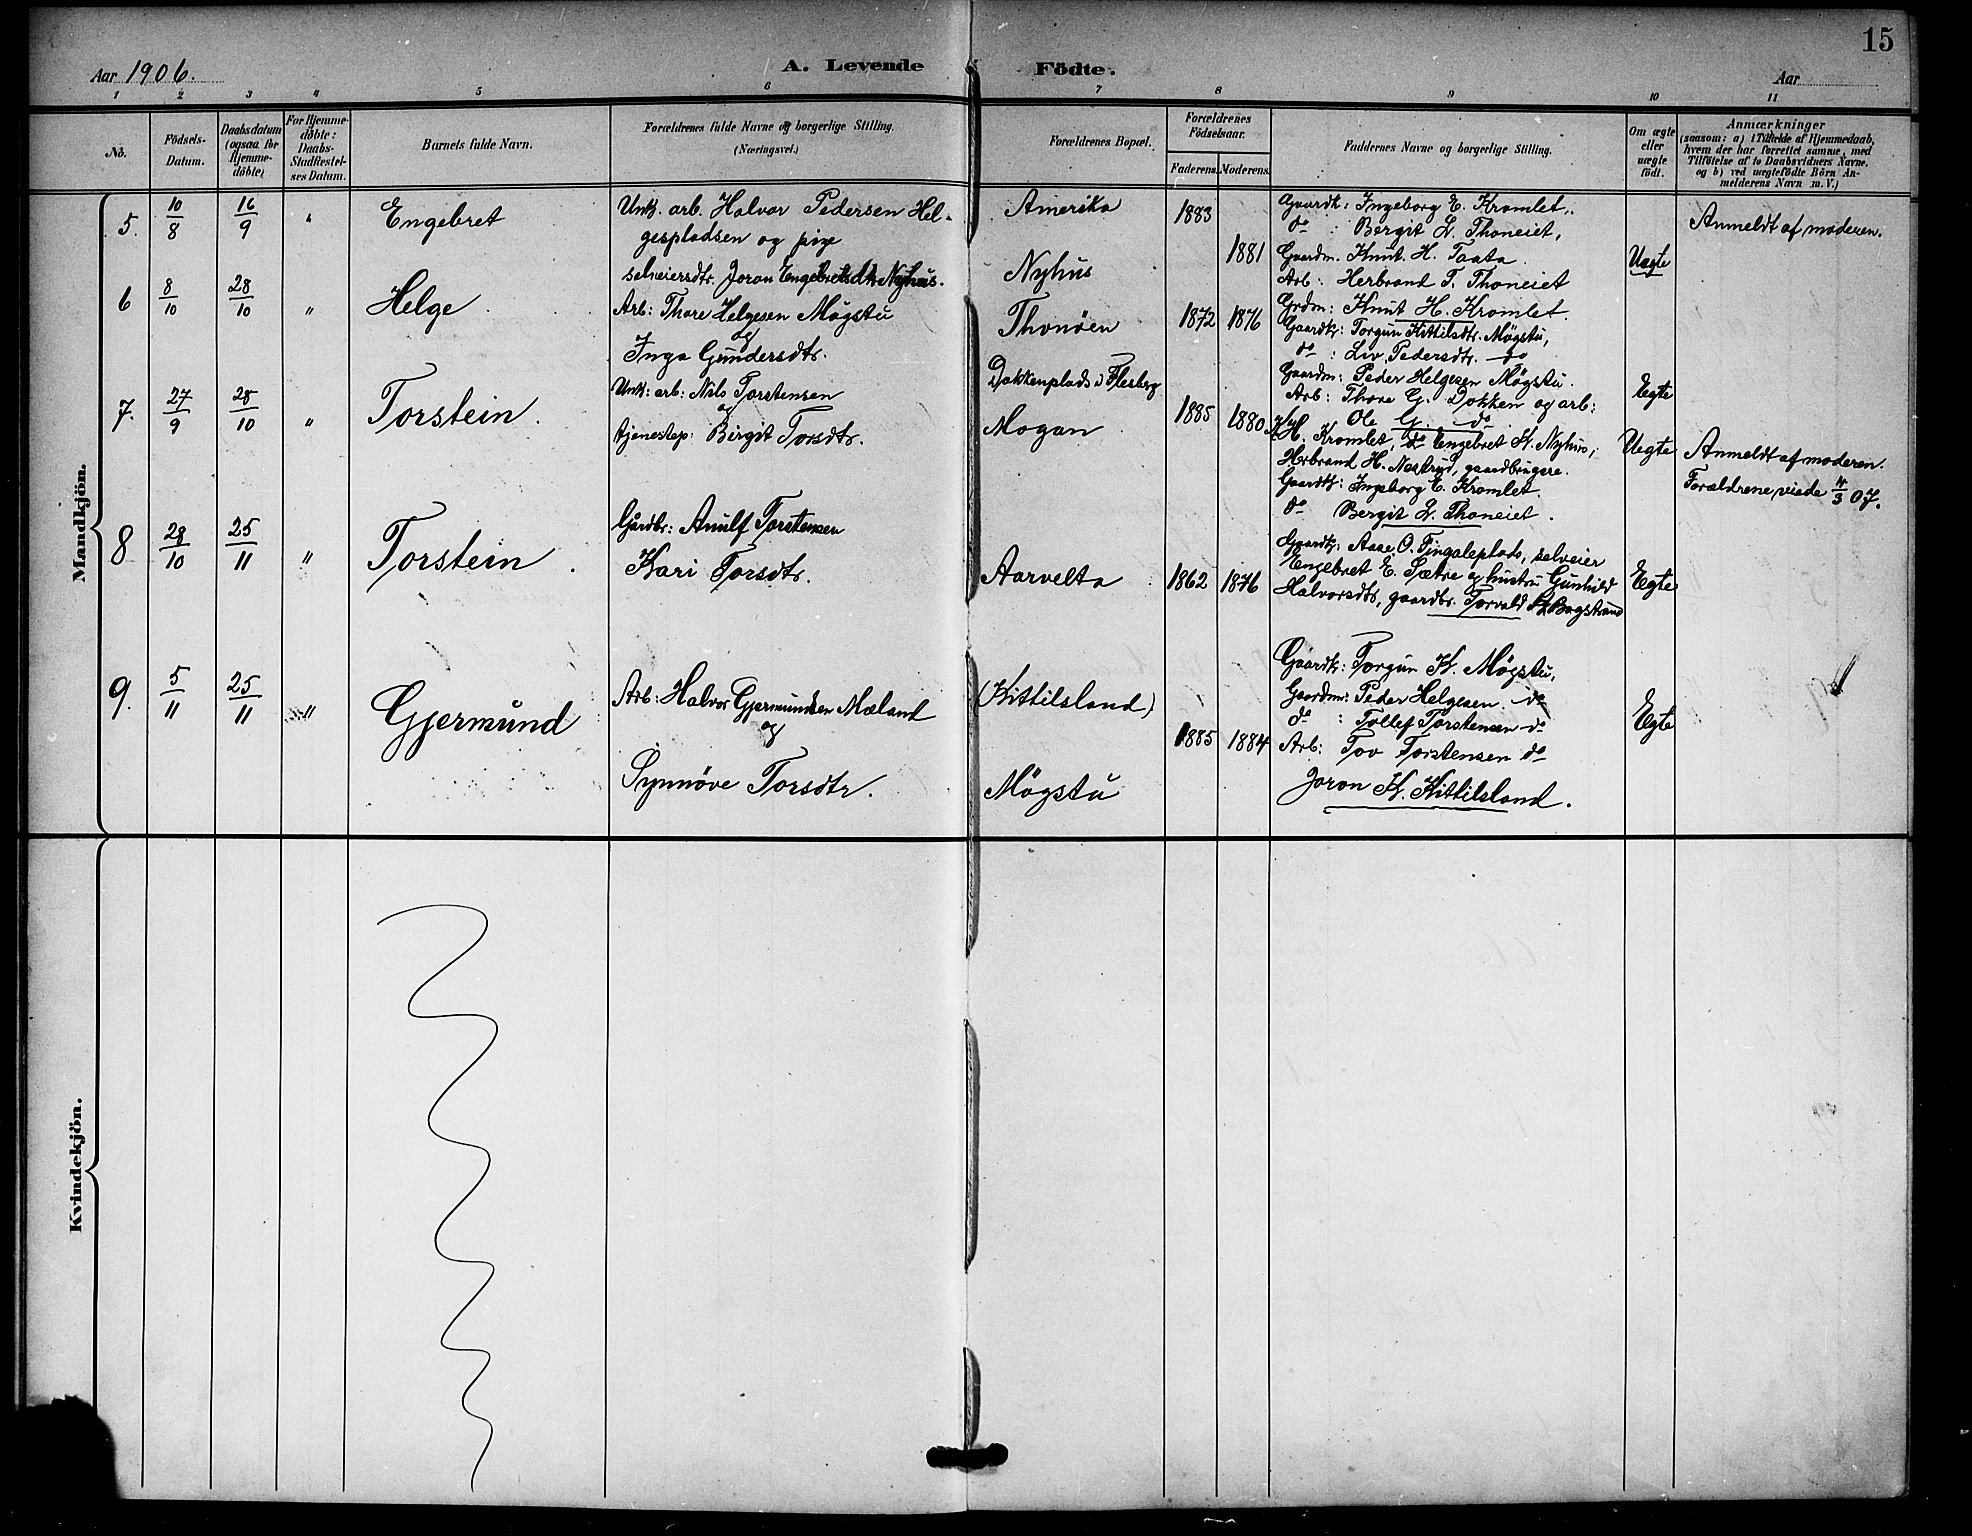 15
Aar 1906.
A. Levende Födte.
Aar
1 2 3 4 5 6 7 8 9 10 11
No.
Födsels-Datum.
Daabsdatum (ogsaa for Hjemme-döbte)
For Hjemme-döbte: Daabs-Stadfæstel-ses Datum.
Barnets fulde Navn.
Forældrenes fulde Navne og borgerlige Stilling.
(Næringsvei.)
Forældrenes Bopæl.
Forældrenes Födselsaar.
Faderens. Moderens.
Faddernes Navne og borgerlige Stilling.
Om ægte eller uægte födt.
Anmærkninger
(saasom: a) i Tilfælde af Hjemmedaab,
hvem der har forrettet samme, med
Tilföielse af to Daabsvidners Navne,
og b) ved uægtefödte Börn An-
melderens Navn m. V.)
Mandkjön.
5. 10/8 16/9 " Engebret
Unk. arb. Halvor Pedersen Hel-
gespladsen og pige
selveiersdtr. Joran Engebretsdtr. Nyhus.
Amerika
Nyhus
1883
1881
Gaardk: Ingeborg E. Kromlet,
do : Bergit L. Thoneiet,
Gaardm. Knut H. Taata.
Arb: Herbrand T. Thoneiet
Grdm: Knut H. Kromlet.
Uægte
Anmeldt af moderen.
6 8/10 28/10 " Helge
Arb: Thore Helgesen Møgstu
og
Inga Gundersdtr.
Thonöen
1872 1876
Gaardk: Torgun Kittilsdtr. Møgstu,
do : Liv Pedersdtr. do
Gaardm: Peder Helgesen Møgstu.
Arb: Thore G. Dokken og arb:
Ole G. do
Egte
7. 27/9 28/10 " Torstein.
Unk: arb: Nils Torstensen
og
tjenestep: Birgit Torsdtr.
Dokkenplads i Flesberg
Mogan
1885 1880
H. Kromlet, do Engebret K. Nyhus,
Herbrand H. Nestrud, gaardbrugere.
Gaardk: Ingeborg E. Kromlet.
do Bergit L. Thoneiet.
Uegte
Anmeldt af moderen.
Forældrene viede 4/3 07.
8 28/10 25/11 " Torstein.
Gårdbr: Anulf Torstensen
Kari Torsdtr.
Aarvelta
1862 1876
Gaardk: Aase O. Tingaleplads, selveier
Engebret E. Sætre og hustru Gunhild
Halvorsdtr, gaardbr. Torvald Bagstrand
Egte
9. 5/11 25/11 " Gjermund
Arb: Halvor Gjermundsen Mæland
og
Synnöve Torsdtr.
(Kittilsland)
Møgstu
1885 1884
Gaardk: Torgun K. Møgstu,
Gaardm: Peder Helgesen do
do : Tollef Torstensen do
Arb: Tov Torstensen do
Joron K. Kittilsland.
Egte
Kvindekjön.